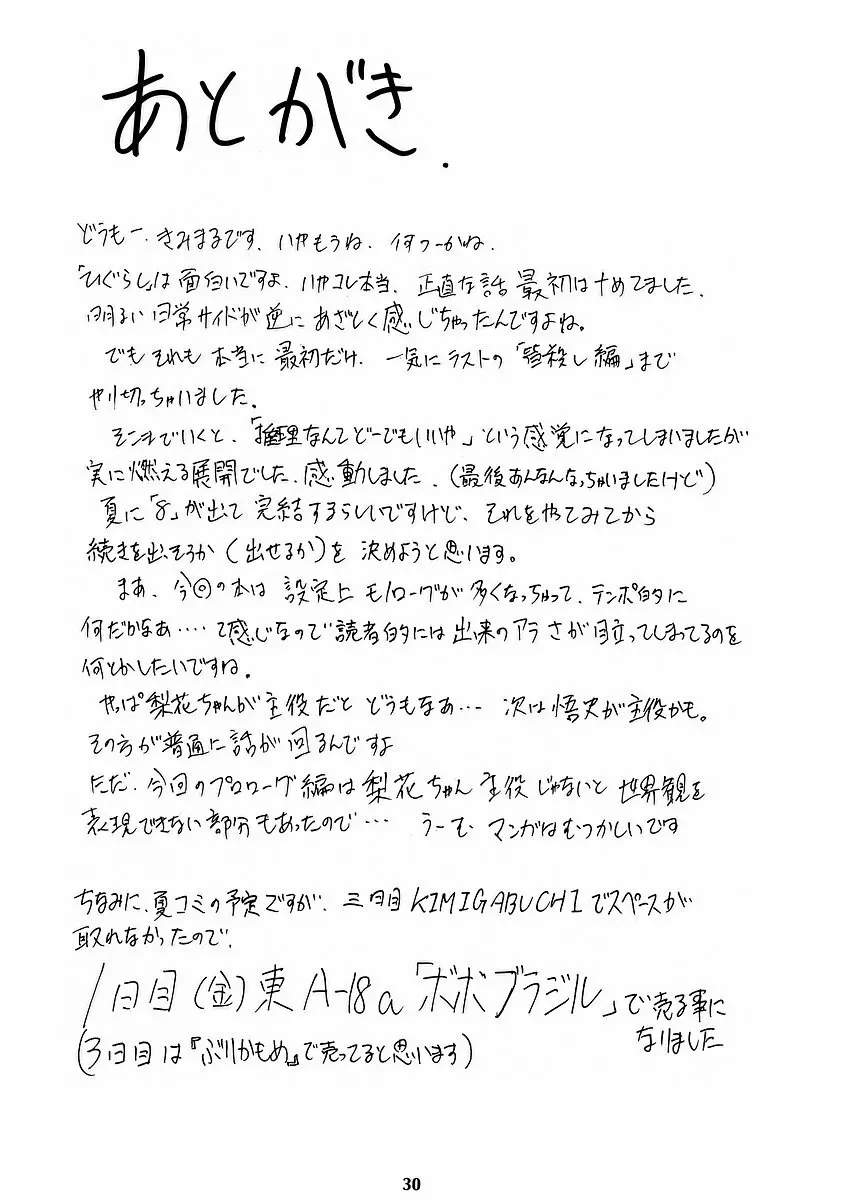 あとがき.
どうもー、きみまるです、いやもうね、何つーかね、
「ひぐらし」は面白いですよ、いやコレ本当、正直な話 最初はナめてました、
明るい日常サイドが逆に あざとく感じちゃったんですよね。
でもそれも 本当に最初だけ、一気にラストの「皆殺し編」まで
やり切っちゃいました。
そこまでいくと、「推理なんてどーでもいいや」という感覚になってしまいましたが
実に燃える展開でした、感動しました、(最後あんなんなっちゃいましたけど)
夏に「8」が出て 完結するらしいですけど、それをやってみてから
続きを出そうか(出せるか)を 決めようと思います。
まあ、今回の本は 設定上 モノローグが多くなっちゃって、テンポ的に
何だかなあ‥‥て感じなので読者的には出来のアラさが目立ってしまってるのを
何とかしたいですね。
やっぱ梨花ちゃんが主役だと どうもなあ‥‥ 次は悟史が主役かも。
その方が普通に話が回るんですよ
ただ、今回のプロローグ編は梨花ちゃん主役じゃないと世界観を
表現できない部分もあったので‥‥ うーむ マンガはむつかしいです
ちなみに、夏コミの予定ですが、三日目KIMIGABUCHIでスペースが
取れなかったので、
1日目(金)東A-18a「ボボブラジル」で売る事に
なりました
(3日目は『ぶりかもめ』で売ってると思います)
30